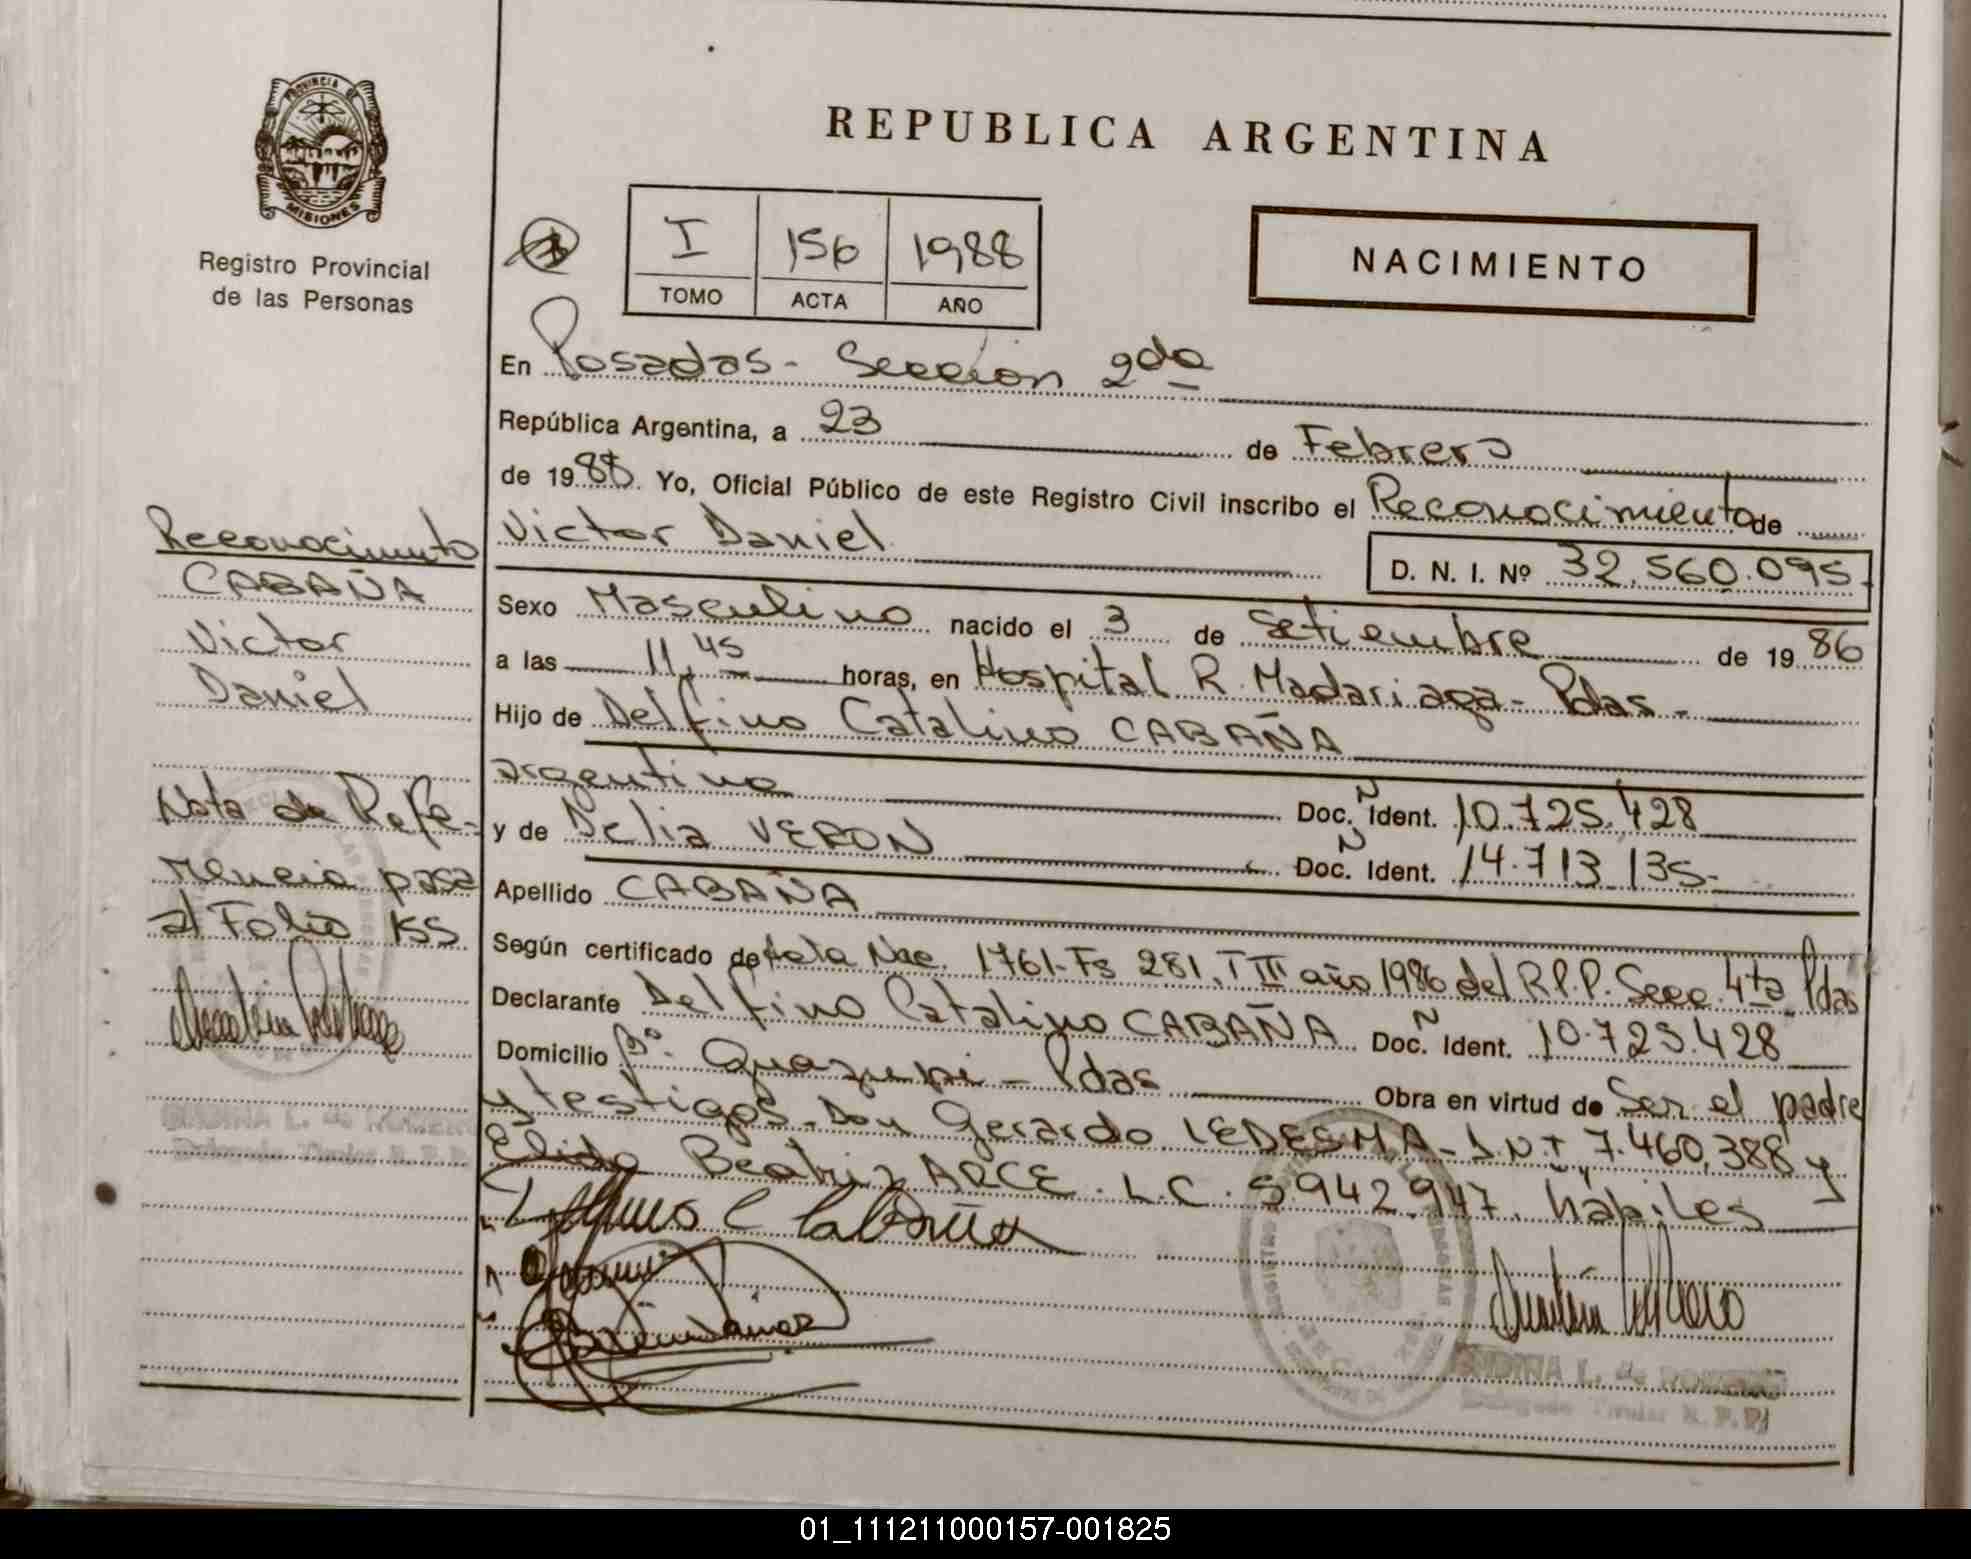 PROVINCIA DE
MISIONES
Registro Provincial
de las Personas
REPUBLICA ARGENTINA
I 156 1988
TOMO ACTA AÑO
NACIMIENTO
En Posadas - Seccion 2da
República Argentina, a 23 de Febrero
de 1988. Yo, Oficial Público de este Registro Civil inscribo el Reconocimiento de
Victor Daniel
D. N. I. Nº 32.560.095.
Sexo Masculino nacido el 3 de Setiembre de 1986
a las 11,45 horas, en Hospital R. Madariaga - Pdas -
Hijo de Delfino Catalino CABAÑA
argentino Doc. N Ident. 10.725.428
y de Delia VERON Doc. N Ident. 14.713.135-
Apellido CABAÑA
Según certificado de Acta Nac. 1761- Fs 281, T III año 1986 del R.P.P. Secc. 4ta Pdas
Declarante Delfino Catalino CABAÑA Doc. N Ident. 10.725.428
Domicilio Bº. Guazupi - Pdas Obra en virtud de Ser el padre
y testigos. Don Gerardo LEDESMA - D.N.I. 7.460.388 y
Elida Beatriz ARCE. L.C. 5.942.947. hábiles
Delfino C Cabaña
Reconocimiento
CABAÑA
Victor
Daniel
Nota de Refe-
rencia pasa
al Folio 155
L. de ROMERO
L. de ROMERO
Delegada Titular R.P.P.
01_111211000157-001825